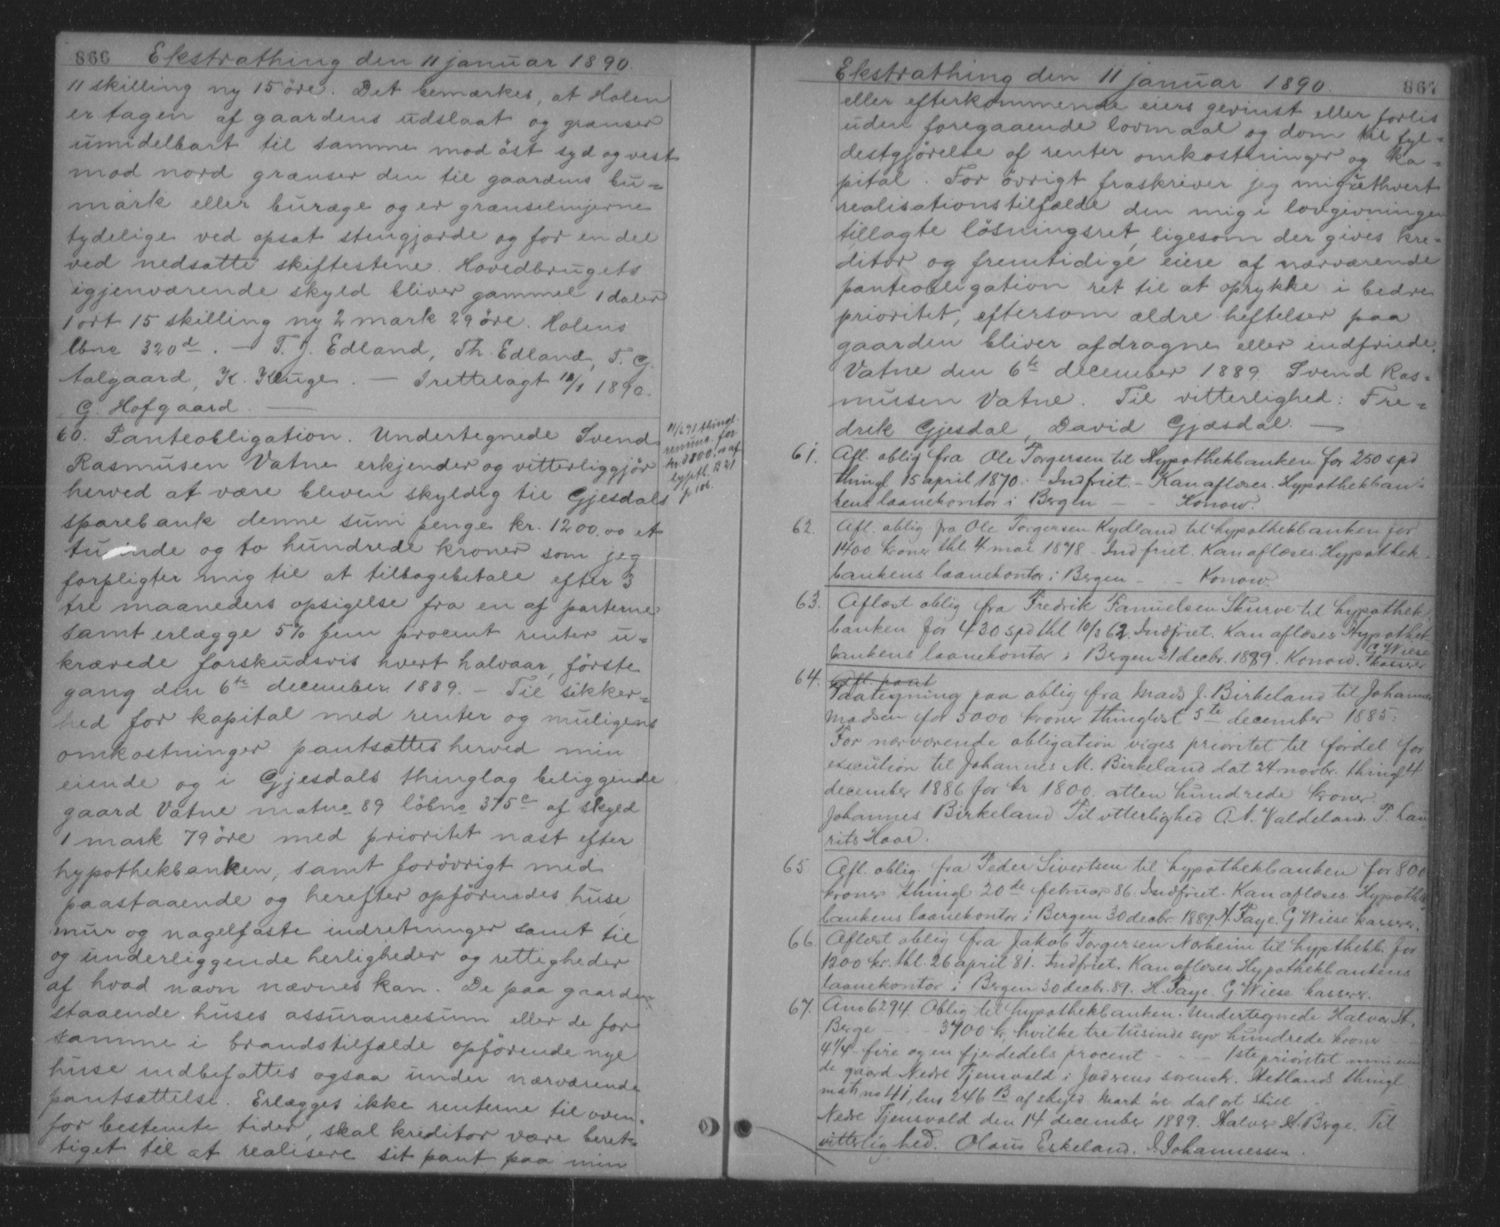 866 Ekstrathing den 11 januar 1890
11 skilling ny 15 öre. Det bemærkes, at Holen
er tagen af gaardens udslaat og grænser
umidelbart til samme mod öst syd og vest
mod nord grænser den til gaardens bu-
mark eller buræge og er grænselinjerne
tydelige ved opsat stengjærde og for en del
ved nedsatte skiftestene. Hovedbrugets
igjenværende skyld bliver gammel 1 daler
1 ort 15 skilling ny 2 mark 29 öre. Holens
lbno 320d. — T. J. Edland, Th. Edland, T. G.
Aalgaard, K. Kluge. — Irettelagt 10/1 1890.
G. Hofgaard —
60. Panteobligation. Undertegnede Svend
Rasmusen Vatne erkjender og vitterliggjör
herved at være bleven skyldig til Gjesdals
sparebank denne sum penge kr. 1200,00 et
tusinde og to hundrede kroner som jeg
forpligter mig til at tilbagebetale efter 3
tre maaneders opsigelse fra en af parterne
samt erlægge 5% fem procent renter u-
krævede forskudsvis hvert halvaar, förste
gang den 6te december 1889. – Til sikker-
hed for kapital med renter og muligens
omkostninger pantsættes herved min
eiende og i Gjesdals thinglag beliggende
gaard Vatne matno 89 löbno 375c af skyld
1 mark 79 öre med prioritet næst efter
hypothekbanken, samt forövrigt med
paastaaende og herefter opförendes huse,
mur og nagelfaste indretninger samt til
og underliggende herligheder og rettigheder
af hvad navn nævnes kan. De paa gaarden
staaende huses assurancesum eller de for
samme i brandstilfælde opförende nye
huse indbefattes ogsaa under nærværende
pantsættelse. Erlægges ikke renterne til oven-
for bestemte tider, skal kreditor være beret-
tiget til at realisere sit pant paa min
11/6 91 thingl.
for
kr. 3800
B 21
p. 106
Ekstrathing den 11 januar 1890. 867
eller efterkommende eiers gevinst eller forlis
uden foregaaende lovmaal og dom til fyl-
destgjörelse af renter omkostninger og ka-
pital. For övrigt fraskriver jeg mig ethvert
realisationstilfælde den mig i lovgivningen
tillagte lösningsret, ligesom der gives kre-
ditor og fremtidige eiere af nærværende
panteobligation ret til at oprykke i bedre
prioritet, eftersom ældre heftelser paa
gaarden bliver afdragne eller indfriede.
Vatne den 6te december 1889 Svend Ras-
musen Vatne. Til vitterlighed: Fre-
drik Gjesdal, David Gjæsdal. —
61. Afl. oblig fra Ole Torgersen til Hypothekbanken for 250 spd
thingl 15 april 1870. – Indfriet. – Kan aflöses. Hypothekban-
kens laanekontor i Bergen — — Konow.
62. Afl. oblig fra Ole Torgersen Kydland til hypothekbanken for
1400 kroner thl 4 mai 1878. Indfriet. Kan aflöses. Hypothek-
bankens laanekontor i Bergen – – Konow
63. Aflöst oblig fra Fredrik Samuelsen Skurve til hypothek-
banken for 430 spd thl 10/3 62. Indfriet. Kan aflöses Hypothek
bankens laanekontor i Bergen 21 decbr. 1889. Konow. G Wiese kasserer
64. Paategning paa oblig fra Mads J. Birkeland til Johannes
Madsen for 5000 kroner thinglæst 5te december 1885.
For nærværende obligation viges prioritet til fordel for
execution til Johannes M. Birkeland dat 24 novbr. thingl 4
december 1886 for kr 1800. atten hundrede kroner
Johannes Birkeland Til vitterlighed A. N. Valdeland T. Lau
rits Haar.
65 Afl. oblig fra Peder Sivertsen til hypothekbanken for 800
kroner thingl 20de februar 86. Indfriet. Kan aflöses. Hypothek-
bankens laanekontor i Bergen 30 decbr. 1889. H. Faye. G Wiese kasserer.
66. Aflöst oblig fra Jakob Torgersen Norheim til hypthekb. for
1200 kr. thl. 26 april 81. Indfriet. Kan aflöses. Hypothekbankens
laanekontor i Bergen 30 decbr. 89. H. Faye. G Wiese kasserer.
67. Ano 6294 Oblig til hypothekbanken. Undertegnede Halvor A.
Berge – – 3700 kr, hvilke tre tusinde syv hundrede kroner
4¼ fire og en fjerdedels procent – – – 1ste prioritet min eien
de gaard Nedre Tjensvold i Jædrens sorenskr. Hetlands thingl
mat no 41, lno 246 B af skyld mark öre dal ort skill
Nedre Tjensvold den 14 december 1889. Halvor A Berge. Til
vitterlighed. Olaus Eskeland. J. Johannessen.